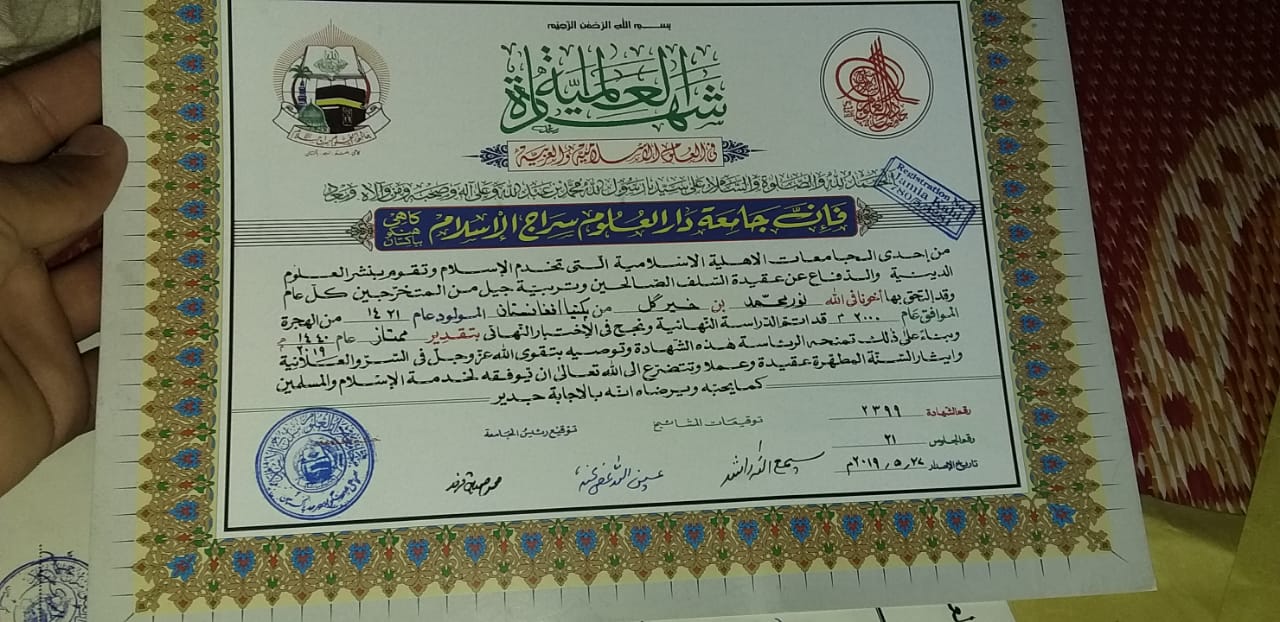 بسم الله الرحمن الرحيم
شهادة العالمية
في العلوم الاسلامية والعربية
الحمد لله والصلوة والسلام على سيدنا رسول الله محمد بن عبد الله وعلى آله وصحبه ومن والاه وبعد
Registration No
فإن جامعة دار العلوم سراج الإسلام كاهي هنكو باكستان
من إحدى الجامعات الاهلية الاسلامية التي تخدم الإسلام وتقوم بنشر العلوم
الدينية والدفاع عن عقيدة السلف الصالحين وتربية جيل من المتخرجين كل عام
وقد التحق بها أخونا في الله نور محمد بن خير گل من پکتیا افغانستان المولود عام ١٤٢١ من الهجرة
الموافق عام ٢٠٠٠ م قد اتم الدراسة النهائية ونجح في الاختبار النهائي بتقدير ممتاز عام ١٤٤٠ ھ ٢٠١٩ م
وبناء على ذلك تمنحه الرئاسة هذه الشهادة وتوصيه بتقوى الله عز وجل في السر والعلانية
وايثار السنة المطهرة عقيدة وعملا وتتضرع الى الله تعالى ان يوفقه لخدمة الإسلام والمسلمين
كما يحبه ويرضاه انه بالاجابة جدير
رقم الشهادة ٢٣٩٩
توقيعات المشائخ
توقيع رئيس الجامعة
رقم الجلوس ٢١
تاريخ الإصدار ٢٧ / ٥ / ٢٠١٩م